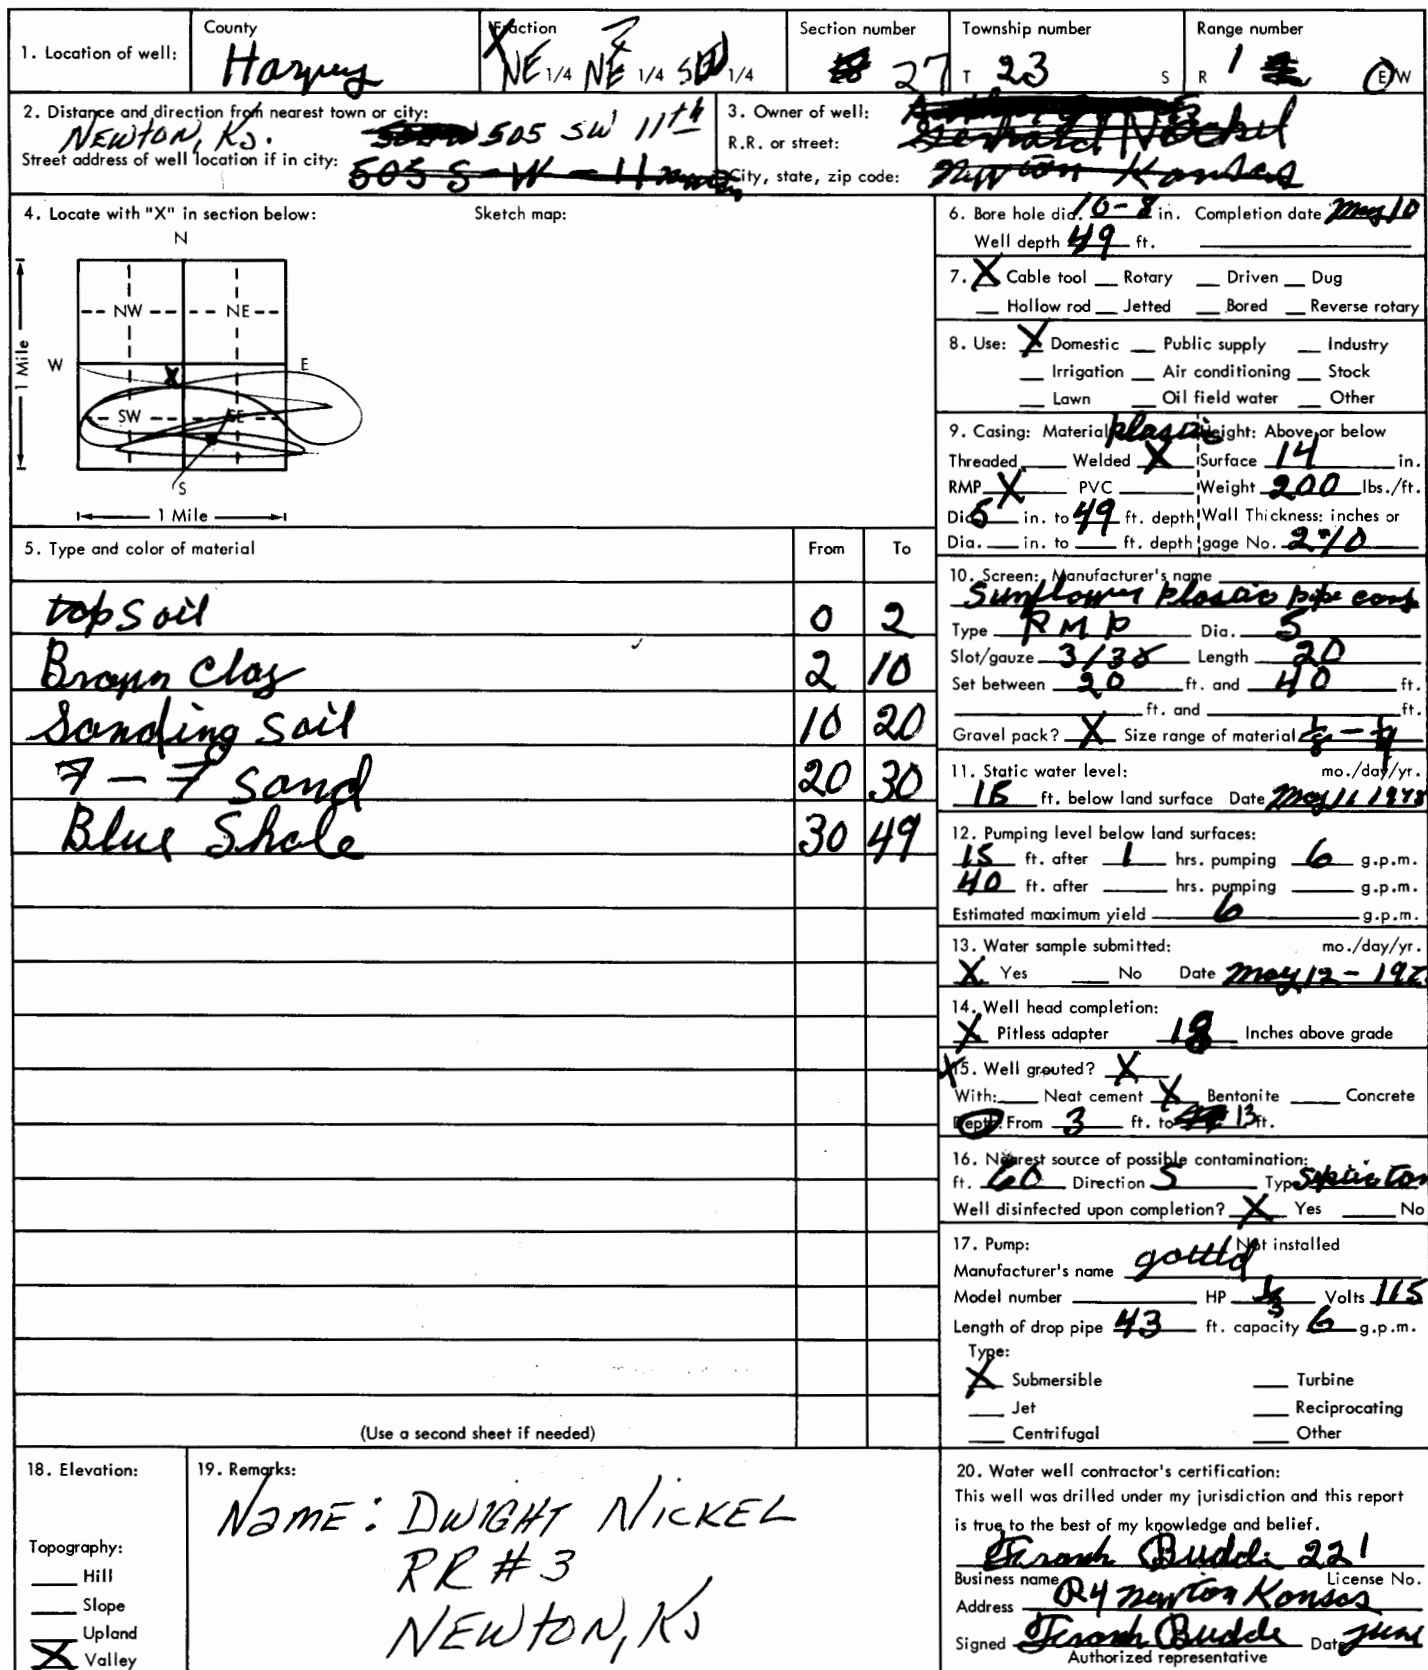 1. Location of well:
County
Harvey
Fraction
NE 1/4 NE 1/4 SW 1/4
Section number
27
Township number
T 23 S
Range number
R 1 E W
2. Distance and direction from nearest town or city:
NEWTON, KS. 505 SW 11th
Street address of well location if in city:
505 S - W - 11
3. Owner of well:
R.R. or street: Nickel
City, state, zip code: Newton Kansas
4. Locate with "X" in section below:
Sketch map:
N
NW NE
1 Mile
W X E
SW SE
S
1 Mile
5. Type and color of material From To
top soil 0 2
Brown Clay 2 10
Sanding Soil 10 20
7 - 7 sand 20 30
Blue Shale 30 49
(Use a second sheet if needed)
6. Bore hole dia. 10-8 in. Completion date May 10
Well depth 49 ft.
7. X Cable tool Rotary Driven Dug
Hollow rod Jetted Bored Reverse rotary
8. Use: X Domestic Public supply Industry
Irrigation Air conditioning Stock
Lawn Oil field water Other
9. Casing: Material plastic Height: Above or below
Threaded Welded X Surface 14 in.
RMP X PVC Weight 200 lbs./ft.
Dia. 5 in. to 49 ft. depth Wall Thickness: inches or
Dia. in. to ft. depth gage No.
10. Screen: Manufacturer's name
Sunflower plastic pipe comp
Type RMP Dia. 5
Slot/gauze Length 20
Set between 20 ft. and 40 ft.
ft. and ft.
Gravel pack? X Size range of material
11. Static water level: mo./day/yr.
15 ft. below land surface Date May 11 1978
12. Pumping level below land surfaces:
15 ft. after 1 hrs. pumping 6 g.p.m.
40 ft. after hrs. pumping g.p.m.
Estimated maximum yield 6 g.p.m.
13. Water sample submitted: mo./day/yr.
X Yes No Date May 12 - 197
14. Well head completion:
X Pitless adapter 18 Inches above grade
X 15. Well grouted? X
With: Neat cement X Bentonite Concrete
Depth: From 3 ft. to 13 ft.
16. Nearest source of possible contamination:
ft. 60 Direction S Type Septic Tan
Well disinfected upon completion? X Yes No
17. Pump: Not installed
Manufacturer's name
Model number HP 1/3 Volts 115
Length of drop pipe 43 ft. capacity 6 g.p.m.
Type:
X Submersible Turbine
Jet Reciprocating
Centrifugal Other
18. Elevation:
Topography:
Hill
Slope
Upland
X Valley
19. Remarks:
NAME: DWIGHT NICKEL
RR # 3
NEWTON, KS
20. Water well contractor's certification:
This well was drilled under my jurisdiction and this report
is true to the best of my knowledge and belief.
Frank Budde 221
Business name License No.
Address R4 Newton Kansas
Signed Frank Budde Date June
Authorized representative